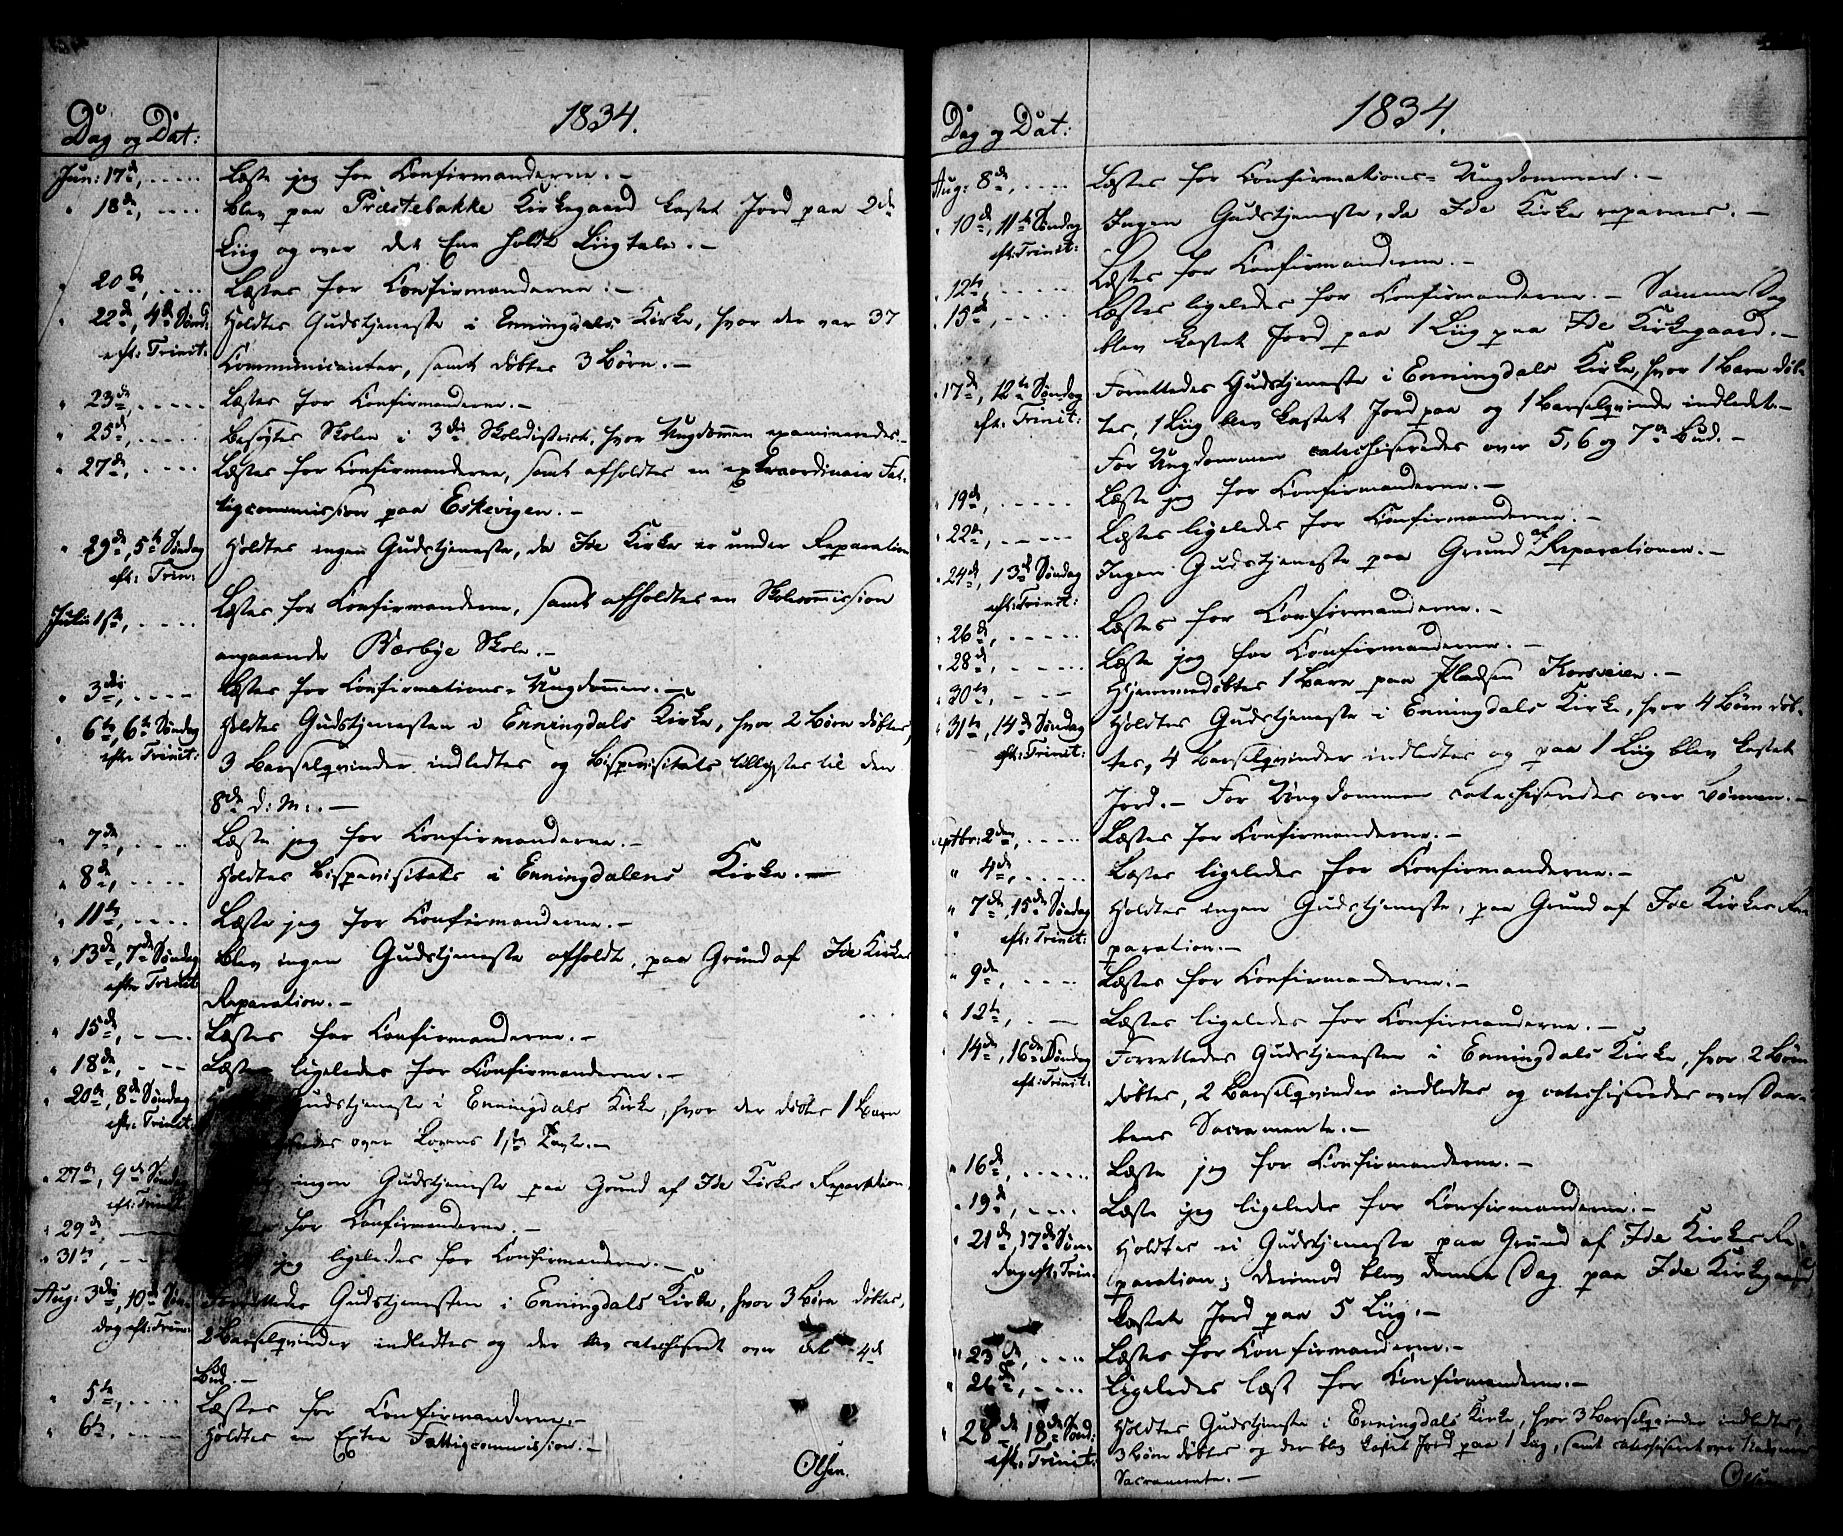 Dag og Dat:
1834.
Jun: 17de, Læste jeg for Confirmanderne.-
" 18de, blev paa Præstebakke Kirkegaard kastet Jord paa 2de
Liig og over det Ene holdt Liigtale.-
" 20de, Læstes for Confirmanderne.-
" 22de, 4de Sønd: Holdtes Gudstjeneste i Enningdals Kirke, hvor der var 37
eft: Trinit: Communicanter, samt døbtes 3 Børn.-
" 23de, Læstes for Confirmanderne.-
" 25de, Besøgtes Skolen i 3die Skoledistrict, hvor Ungdommen examineredes.-
" 27de, Læstes for Confirmanderne, samt afholdtes en extraordinair Fat-
tigcommission paa Eskevigen.-
" 29de, 5te Søndag Holdtes ingen Gudstjeneste, da Ide Kirke er under Reparation
eft: Trin:
Julii 1ste, Læstes for Confirmanderne, samt afholdtes en Skolecommission
angaaende Bærbye Skole.-
" 3die, Læstes for Confirmations-Ungdommen.-
" 6te, 6te Søndag Holdtes Gudstjenesten i Enningdals Kirke, hvor 2 Børn døbtes,
efter Trinit: 3 Barselqvinder indledtes og Bispevisitats tillystes til den
8de d: M:.-
" 7de, Læste jeg for Confirmanderne.-
" 8de, Holdtes Bispevisitats i Enningdalens Kirke.-
" 11te, Læste jeg for Confirmanderne.-
" 13de, 7de Søndag Blev ingen Gudstjeneste afholdt, paa Grund af Ide Kirkes
efter Trinit: Reparation.-
" 15de, Læstes for Confirmanderne.-
" 18de, Læstes ligeledes for Confirmanderne.-
" 20de, 8de Søndag Gudstjeneste i Enningdals Kirke, hvor der døbtes 1 Barn
eft: Trinit: over Lovens 1ste Tavle.-
" 27de, 9de Søndag ingen Gudstjeneste paa Grund af Ide Kirkes Reparation.
eft: Trinit:
" 29de, for Confirmanderne.-
" 31te, jeg ligeledes for Confirmanderne.-
Aug: 3die, 10de Søn- Forrettedes Gudstjenesten i Enningdals Kirke, hvor 3 Børn døbtes,
dag eft: Trin: 2 Barselqvinder indledtes og der blev catechiseret over det 4de
Bud.-
" 5te, Læstes for Confirmanderne.-
" 6te, Holdtes en Extra Fattigcommission.-
Olsen.
Dag og Dat:
1834.
Aug: 8de, Læstes for Confirmations-Ungdommen.-
" 10de, 11te Søndag Ingen Gudstjeneste, da Ide Kirke repareres.-
eft: Trinit:
" 12te, Læstes for Confirmanderne.-
" 15de, Læstes ligeledes for Confirmanderne.- Samme Dag
blev kastet Jord paa 1 Liig paa Ide Kirkegaard.-
" 17de, 12te Søndag Forrettedes Gudstjeneste i Enningdals Kirke, hvor 1 Barn døb-
eft: Trinit: tes, 1 Liig blev kastet Jord paa og 1 Barselqvinde indledet.-
For Ungdommen catechiseredes over 5, 6 og 7de Bud.-
" 19de, Læste jeg for Confirmanderne.-
" 22de, Læstes ligeledes for Confirmanderne.-
" 24de, 13de Søndag Ingen Gudstjeneste paa Grund af Reparationen.-
eft: Trinit:
" 26de, Læstes for Confirmanderne.-
" 28de, Læste jeg for Confirmanderne.-
" 30te, Hjemmedøbtes 1 Barn paa Pladsen Korsveien.-
" 31te, 14de Søndag Holdtes Gudstjeneste i Enningdals Kirke, hvor 4 Børn døb-
eft: Trinit: tes, 4 Barselqvinder indledtes og paa 1 Liig blev kastet
Jord.- For Ungdommen catechiseredes over Bønnen.-
Septbr: 2den, Læstes for Confirmanderne.-
" 4de, Læstes ligeledes for Confirmanderne.-
" 7de, 15de Søndag Holdtes ingen Gudstjeneste, paa Grund af Ide Kirkes Re-
eft: Trinit: paration.-
" 9de, Læstes for Confirmanderne.-
" 12te, Læstes ligeledes for Confirmanderne.-
" 14de, 16de Søndag Forrettedes Gudstjenesten i Enningdals Kirke, hvor 2 Børn
eft: Trinit: døbtes, 2 Barselqvinder indledtes og catechiseredes over Daa-
bens Sacramente.-
" 16de, Læste jeg for Confirmanderne.-
" 19de, Læste jeg ligeledes for Confirmanderne.-
" 21de, 17de Søn- Holdtes ei Gudstjeneste paa Grund af Ide Kirkes Re-
dag eft: Trin: paration; derimod blev denne Dag paa Ide Kirkegaard
kastet Jord paa 5 Liig.-
" 23de, Læstes for Confirmanderne.-
" 26de, Ligeledes læst for Confirmanderne.-
" 28de, 18de Sønd: Holdtes Gudstjeneste i Enningdals Kirke, hvor 3 Barselqvinder indledtes,
eft: Trinit: 3 Børn døbtes og der blev kastet Jord paa 1 Liig, samt catechiseret over Nadverens
Sacramente.-
Olsen